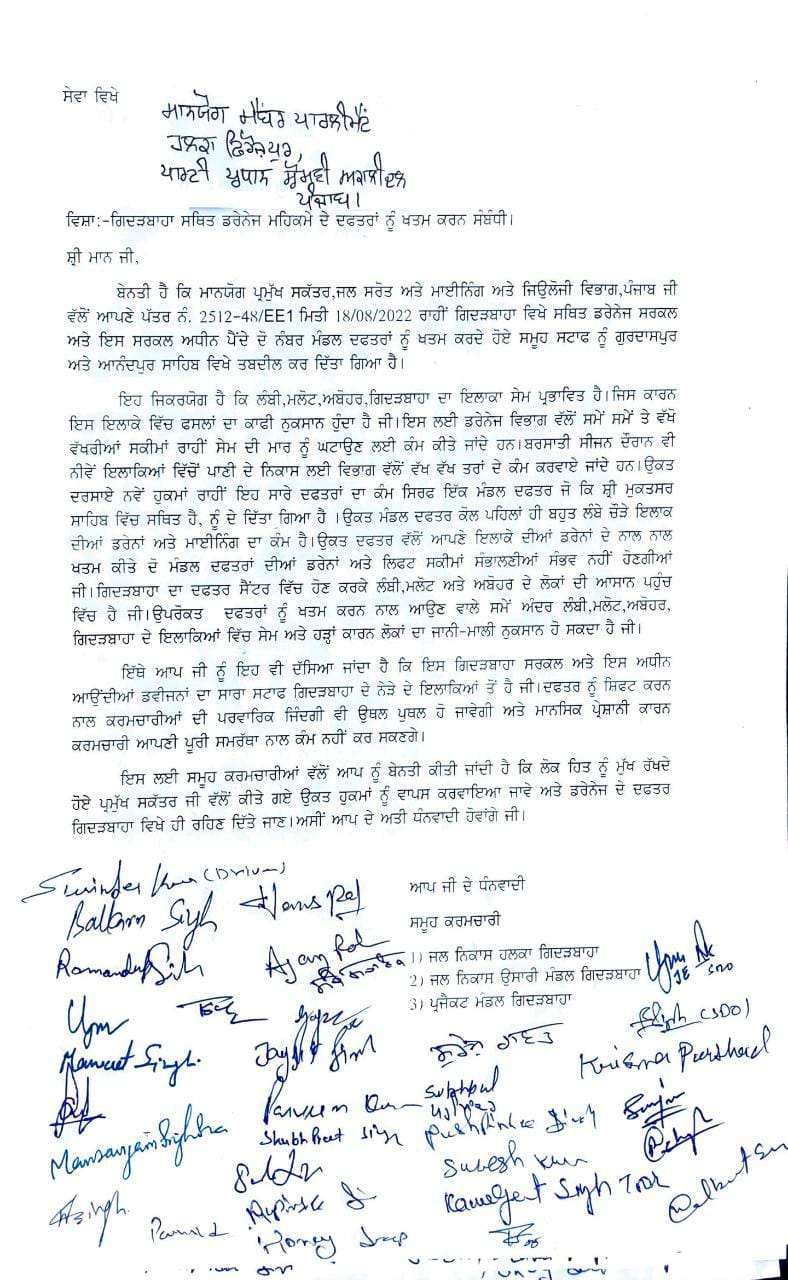 ਸੇਵਾ ਵਿਖੇ
ਮਾਨਯੋਗ ਮੈਂਬਰ ਪਾਰਲੀਮੈਂਟ
ਹਲਕਾ ਫਿਰੋਜ਼ਪੁਰ,
ਪਾਰਟੀ ਪ੍ਰਧਾਨ ਸ਼੍ਰੋਮਣੀ ਅਕਾਲੀ ਦਲ
ਪੰਜਾਬ।
ਵਿਸ਼ਾ:-ਗਿਦੜਬਾਹਾ ਸਥਿਤ ਡਰੇਨੇਜ ਮਹਿਕਮੇ ਦੇ ਦਫਤਰਾਂ ਨੂੰ ਖਤਮ ਕਰਨ ਸੰਬੰਧੀ।
ਸ਼੍ਰੀ ਮਾਨ ਜੀ,
ਬੇਨਤੀ ਹੈ ਕਿ ਮਾਨਯੋਗ ਪ੍ਰਮੁੱਖ ਸਕੱਤਰ,ਜਲ ਸਰੋਤ ਅਤੇ ਮਾਈਨਿੰਗ ਅਤੇ ਜਿਉਲੋਜੀ ਵਿਭਾਗ,ਪੰਜਾਬ ਜੀ
ਵੱਲੋਂ ਆਪਣੇ ਪੱਤਰ ਨੰ. 2512-48/EE1 ਮਿਤੀ 18/08/2022 ਰਾਹੀਂ ਗਿਦੜਬਾਹਾ ਵਿਖੇ ਸਥਿਤ ਡਰੇਨੇਜ ਸਰਕਲ
ਅਤੇ ਇਸ ਸਰਕਲ ਅਧੀਨ ਪੈਂਦੇ ਦੋ ਨੰਬਰ ਮੰਡਲ ਦਫਤਰਾਂ ਨੂੰ ਖਤਮ ਕਰਦੇ ਹੋਏ ਸਮੂਹ ਸਟਾਫ ਨੂੰ ਗੁਰਦਾਸਪੁਰ
ਅਤੇ ਆਨੰਦਪੁਰ ਸਾਹਿਬ ਵਿਖੇ ਤਬਦੀਲ ਕਰ ਦਿੱਤਾ ਗਿਆ ਹੈ।
ਇਹ ਜਿਕਰਯੋਗ ਹੈ ਕਿ ਲੰਬੀ,ਮਲੋਟ,ਅਬੋਹਰ,ਗਿਦੜਬਾਹਾ ਦਾ ਇਲਾਕਾ ਸੇਮ ਪ੍ਰਭਾਵਿਤ ਹੈ।ਜਿਸ ਕਾਰਨ
ਇਸ ਇਲਾਕੇ ਵਿੱਚ ਫਸਲਾਂ ਦਾ ਕਾਫੀ ਨੁਕਸਾਨ ਹੁੰਦਾ ਹੈ ਜੀ।ਇਸ ਲਈ ਡਰੇਨੇਜ ਵਿਭਾਗ ਵੱਲੋਂ ਸਮੇਂ ਸਮੇਂ ਤੇ ਵੱਖੋ
ਵੱਖਰੀਆਂ ਸਕੀਮਾਂ ਰਾਹੀਂ ਸੇਮ ਦੀ ਮਾਰ ਨੂੰ ਘਟਾਉਣ ਲਈ ਕੰਮ ਕੀਤੇ ਜਾਂਦੇ ਹਨ।ਬਰਸਾਤੀ ਸੀਜਨ ਦੌਰਾਨ ਵੀ
ਨੀਵੇਂ ਇਲਾਕਿਆਂ ਵਿੱਚੋਂ ਪਾਣੀ ਦੇ ਨਿਕਾਸ ਲਈ ਵਿਭਾਗ ਵੱਲੋਂ ਵੱਖ ਵੱਖ ਤਰਾਂ ਦੇ ਕੰਮ ਕਰਵਾਏ ਜਾਂਦੇ ਹਨ।ਉਕਤ
ਦਰਸਾਏ ਨਵੇਂ ਹੁਕਮਾਂ ਰਾਹੀਂ ਇਹ ਸਾਰੇ ਦਫਤਰਾਂ ਦਾ ਕੰਮ ਸਿਰਫ ਇੱਕ ਮੰਡਲ ਦਫਤਰ ਜੋ ਕਿ ਸ਼੍ਰੀ ਮੁਕਤਸਰ
ਸਾਹਿਬ ਵਿੱਚ ਸਥਿਤ ਹੈ, ਨੂੰ ਦੇ ਦਿੱਤਾ ਗਿਆ ਹੈ ।ਉਕਤ ਮੰਡਲ ਦਫਤਰ ਕੋਲ ਪਹਿਲਾਂ ਹੀ ਬਹੁਤ ਲੰਬੇ ਚੌੜੇ ਇਲਾਕ
ਦੀਆਂ ਡਰੇਨਾਂ ਅਤੇ ਮਾਈਨਿੰਗ ਦਾ ਕੰਮ ਹੈ।ਉਕਤ ਦਫਤਰ ਵੱਲੋਂ ਆਪਣੇ ਇਲਾਕੇ ਦੀਆਂ ਡਰੇਨਾਂ ਦੇ ਨਾਲ ਨਾਲ
ਖਤਮ ਕੀਤੇ ਦੋ ਮੰਡਲ ਦਫਤਰਾਂ ਦੀਆਂ ਡਰੇਨਾਂ ਅਤੇ ਲਿਫਟ ਸਕੀਮਾਂ ਸੰਭਾਲਣੀਆਂ ਸੰਭਵ ਨਹੀਂ ਹੋਣਗੀਆਂ
ਜੀ।ਗਿਦੜਬਾਹਾ ਦਾ ਦਫਤਰ ਸੈਂਟਰ ਵਿੱਚ ਹੋਣ ਕਰਕੇ ਲੰਬੀ,ਮਲੋਟ ਅਤੇ ਅਬੋਹਰ ਦੇ ਲੋਕਾਂ ਦੀ ਆਸਾਨ ਪਹੁੰਚ
ਵਿੱਚ ਹੈ ਜੀ।ਉਪਰੋਕਤ ਦਫਤਰਾਂ ਨੂੰ ਖਤਮ ਕਰਨ ਨਾਲ ਆਉਣ ਵਾਲੇ ਸਮੇਂ ਅੰਦਰ ਲੰਬੀ,ਮਲੋਟ,ਅਬੋਹਰ,
ਗਿਦੜਬਾਹਾ ਦੇ ਇਲਾਕਿਆਂ ਵਿੱਚ ਸੇਮ ਅਤੇ ਹੜ੍ਹਾਂ ਕਾਰਨ ਲੋਕਾਂ ਦਾ ਜਾਨੀ-ਮਾਲੀ ਨੁਕਸਾਨ ਹੋ ਸਕਦਾ ਹੈ ਜੀ।
ਇੱਥੇ ਆਪ ਜੀ ਨੂੰ ਇਹ ਵੀ ਦੱਸਿਆ ਜਾਂਦਾ ਹੈ ਕਿ ਇਸ ਗਿਦੜਬਾਹਾ ਸਰਕਲ ਅਤੇ ਇਸ ਅਧੀਨ
ਆਉਂਦੀਆਂ ਡਵੀਜਨਾਂ ਦਾ ਸਾਰਾ ਸਟਾਫ ਗਿਦੜਬਾਹਾ ਦੇ ਨੇੜੇ ਦੇ ਇਲਾਕਿਆਂ ਤੋਂ ਹੈ ਜੀ।ਦਫਤਰ ਨੂੰ ਸ਼ਿਫਟ ਕਰਨ
ਨਾਲ ਕਰਮਚਾਰੀਆਂ ਦੀ ਪਰਵਾਰਿਕ ਜਿੰਦਗੀ ਵੀ ਉਥਲ ਪੁਥਲ ਹੋ ਜਾਵੇਗੀ ਅਤੇ ਮਾਨਸਿਕ ਪ੍ਰੇਸ਼ਾਨੀ ਕਾਰਨ
ਕਰਮਚਾਰੀ ਆਪਣੀ ਪੂਰੀ ਸਮਰੱਥਾ ਨਾਲ ਕੰਮ ਨਹੀਂ ਕਰ ਸਕਣਗੇ।
ਇਸ ਲਈ ਸਮੂਹ ਕਰਮਚਾਰੀਆਂ ਵੱਲੋਂ ਆਪ ਨੂੰ ਬੇਨਤੀ ਕੀਤੀ ਜਾਂਦੀ ਹੈ ਕਿ ਲੋਕ ਹਿਤ ਨੂੰ ਮੁੱਖ ਰੱਖਦੇ
ਹੋਏ ਪ੍ਰਮੁੱਖ ਸਕੱਤਰ ਜੀ ਵੱਲੋਂ ਕੀਤੇ ਗਏ ਉਕਤ ਹੁਕਮਾਂ ਨੂੰ ਵਾਪਸ ਕਰਵਾਇਆ ਜਾਵੇ ਅਤੇ ਡਰੇਨੇਜ ਦੇ ਦਫਤਰ
ਗਿਦੜਬਾਹਾ ਵਿਖੇ ਹੀ ਰਹਿਣ ਦਿੱਤੇ ਜਾਣ।ਅਸੀਂ ਆਪ ਦੇ ਅਤੀ ਧੰਨਵਾਦੀ ਹੋਵਾਂਗੇ ਜੀ।
(Driver)
ਆਪ ਜੀ ਦੇ ਧੰਨਵਾਦੀ
Balkarn Singh
ਸਮੂਹ ਕਰਮਚਾਰੀ
1) ਜਲ ਨਿਕਾਸ ਹਲਕਾ ਗਿਦੜਬਾਹਾ
2) ਜਲ ਨਿਕਾਸ ਉਸਾਰੀ ਮੰਡਲ ਗਿਦੜਬਾਹਾ
JE SDO
3) ਪ੍ਰਜੈਕਟ ਮੰਡਲ ਗਿਦੜਬਾਹਾ
(SDO)
Manveet Singh.
Krishna Parshad
Shubhpreet Singh
Suresh Kum
Singh
Kamaljeet Singh Toor
Honey